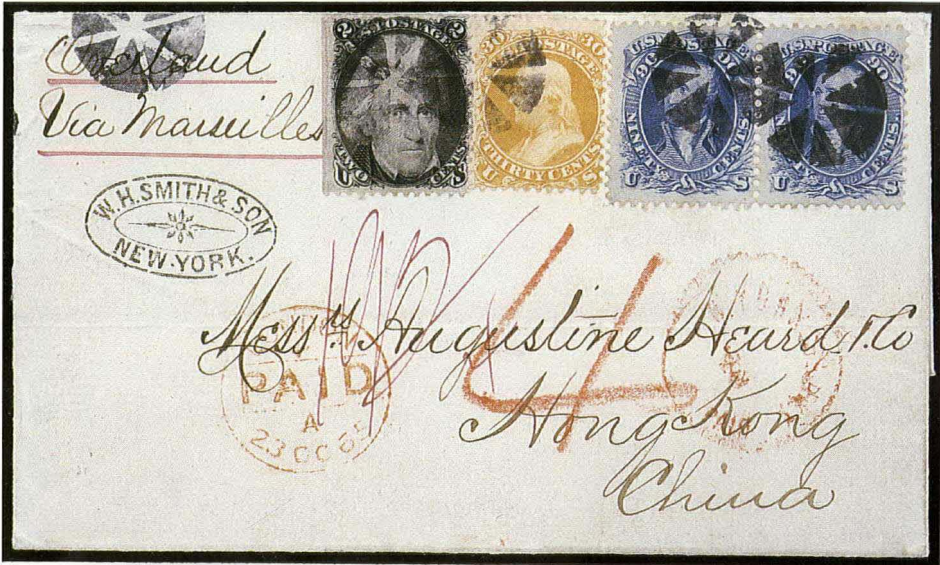 Overland
Via Marseilles
2 POSTAGE 2
U TWO CENTS S
30 POSTAGE 30
U THIRTY CENTS S
90 U.S. POSTAGE 90
NINETY CENTS
U S
90 U.S. POSTAGE 90
CENTS
U S
W.H. SMITH & SON
NEW-YORK.
4
Mess.rs Augustine Heard & Co
Hong Kong
China
PAID
A
23 OC 65